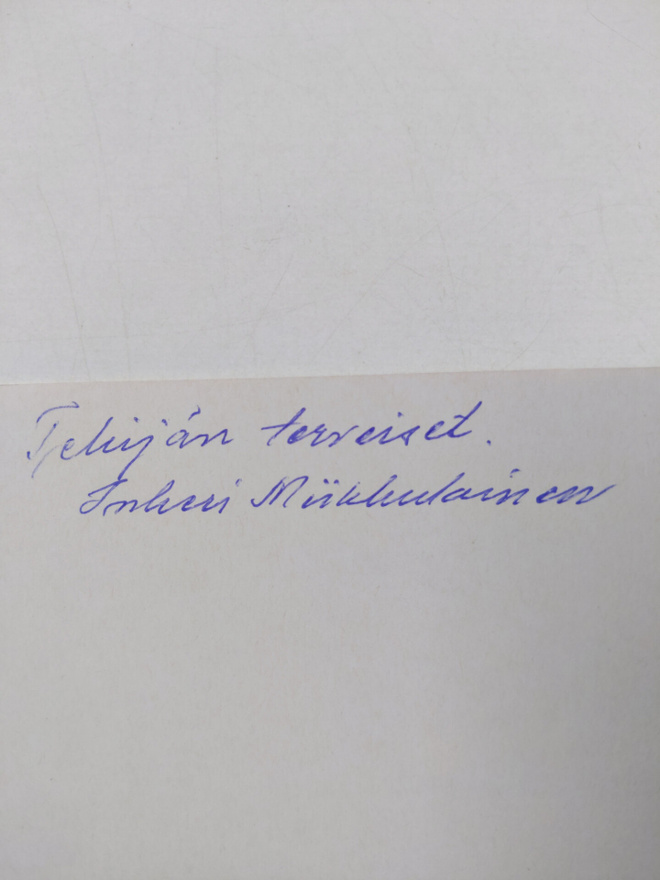 Tekijän terveiset.
Inkeri Miikkulainen